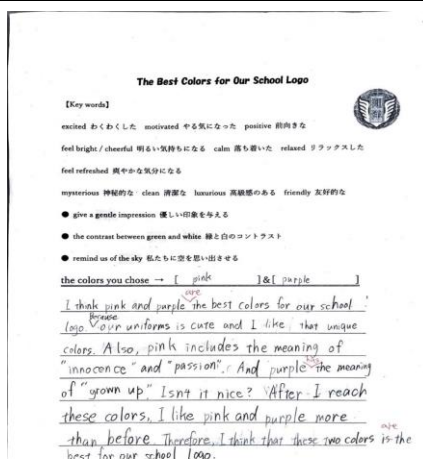 The Best Colors for Our School Logo
【Key words】
excited わくわくした motivated やる気になった positive 前向きな
feel bright / cheerful 明るい気持ちになる calm 落ち着いた relaxed リラックスした
feel refreshed 爽やかな気分になる
mysterious 神秘的な clean 清潔な luxurious 高級感のある friendly 友好的な
● give a gentle impression 優しい印象を与える
● the contrast between green and white 緑と白のコントラスト
● remind us of the sky 私たちに空を思い出させる
the colors you chose → [ pink ]&[ purple ]
are
I think pink and purple the best colors for our school
because
logo. our uniforms is cute and I like that unique
colors. Also, pink includes the meaning of
"innocence" and "passion". And purple the meaning
of "grown up." Isnt it nice? After I reach
these colors, I like pink and purple more
are
than before. Therefore, I think that these two colors is the
best for our school logo.